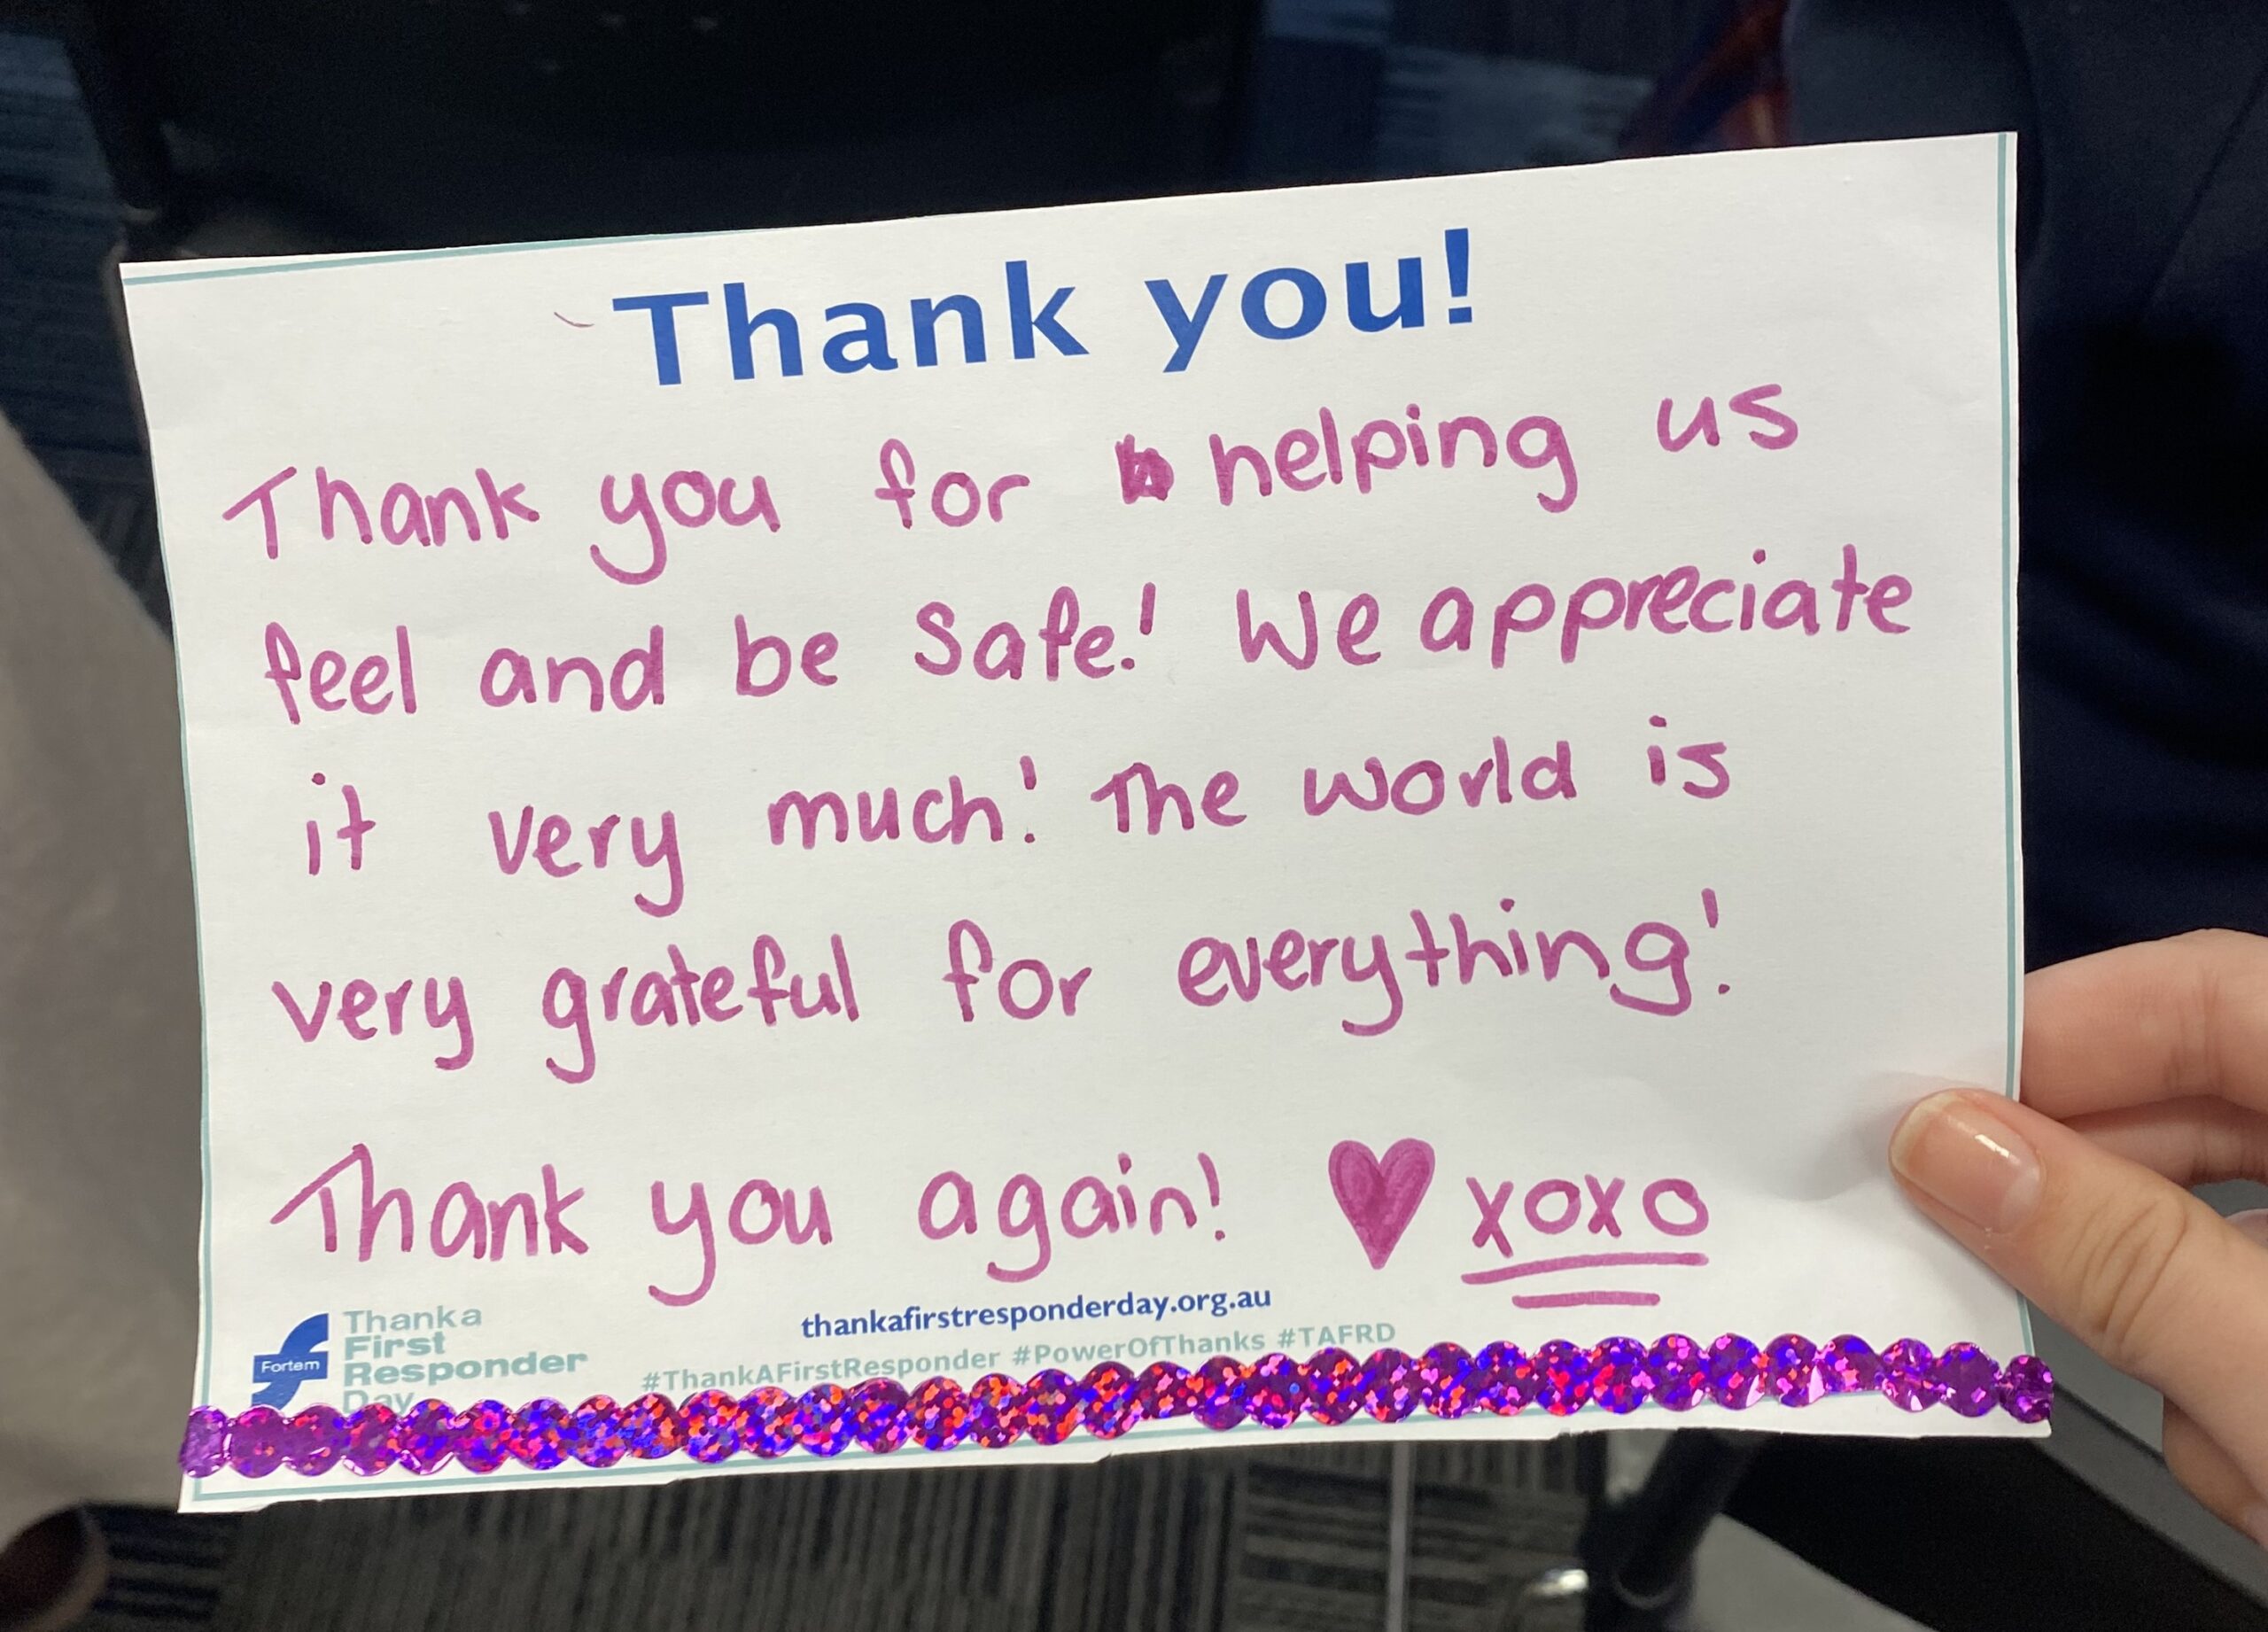 Thank you!
Thank you for helping us
feel and be safe! We appreciate
it very much! The world is
very grateful for everything!
Thank you again! ♥ xoxo
Fortem
Thank a
First
Responder
Day
thankafirstresponderday.org.au
#ThankAFirstResponder #PowerOfThanks #TAFRD